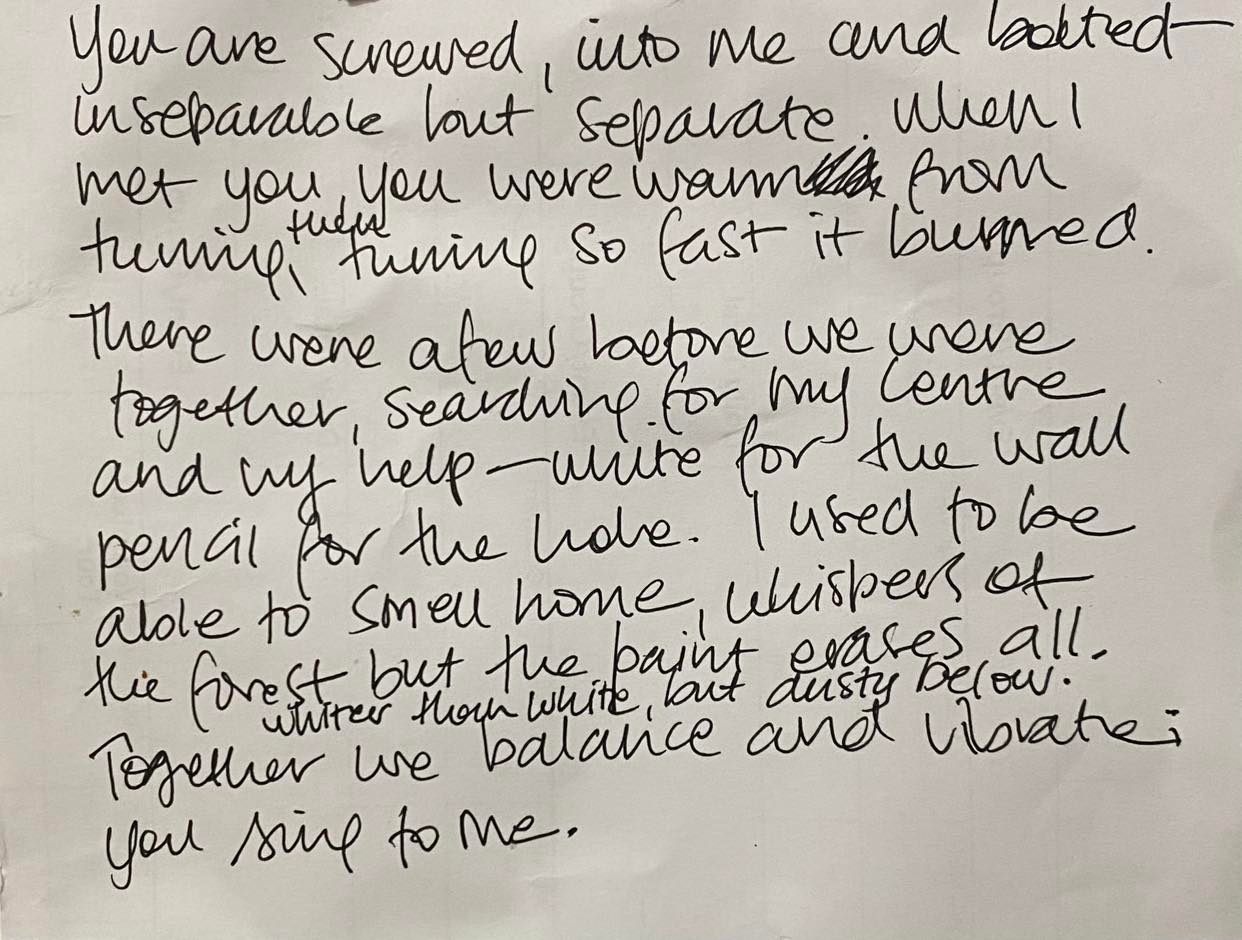 You are screwed, into me and bolted—
inseparable but separate. When I
met you, you were warm from
turning, turning so fast it burned.
There were a few before we were
together, searching for my centre
and my help—white for the wall
pencil for the hole. I used to be
able to smell home, whispers of
the forest but the paint erases all.
whiter than white, but dusty below.
Together we balance and vibrate;
you sing to me.